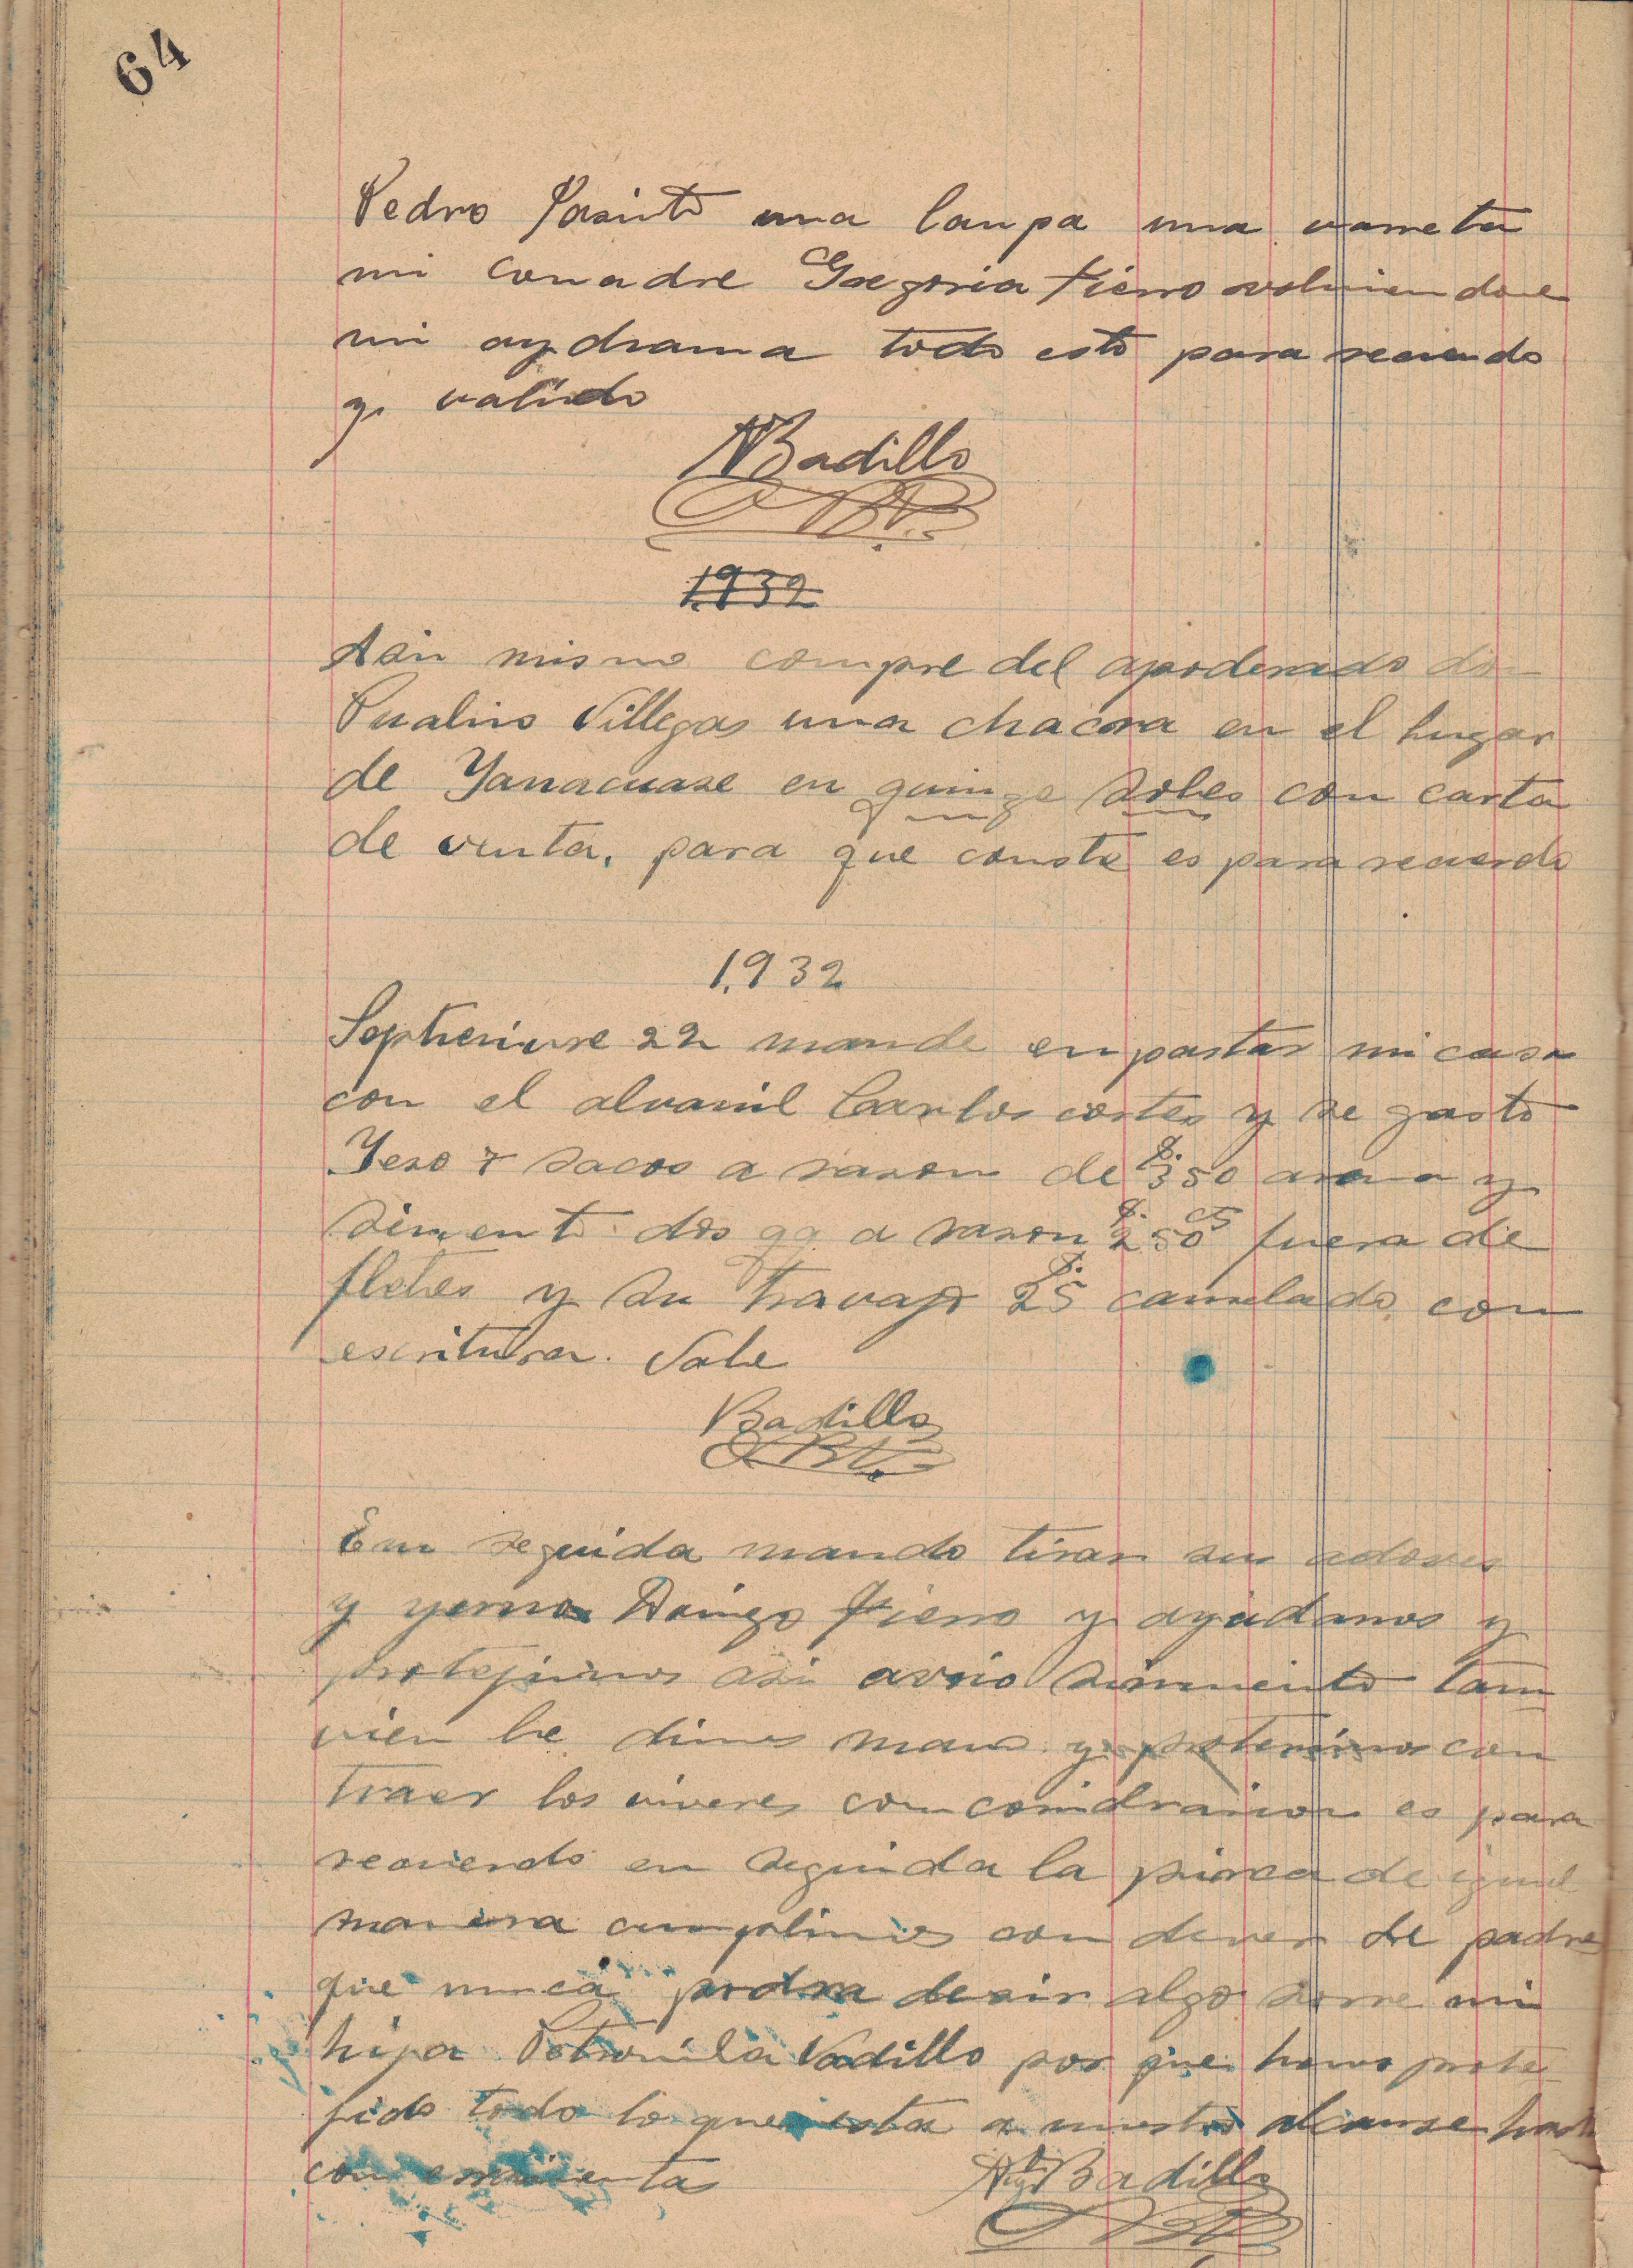 64
Pedro Jasinto una lanpa una varreta
mi comadre Gregoria fierro volviendome
mi todo esto para recuerdo
y valido
NBadillo
1932
Asin mismo compre del apoderado don
Villegas una chacra en el lugar
de Yanacuase en quinze soles con carta
de venta, para que conste es para recuerdo
1,932
Septienvre 22 mande enpastar mi casa
con el alvanil Carlos cortes y se gasto
Yeso 7 sacos a rason de S. 3 50 y
simento dos qq a rason S. 2 50 cts fuera de
fletes y su travajo S. 25 canselado con
escritura. Vale
Badillo
En seguida mando tirar sus adoves
y yerno fierro y ayudamos y
protejimos asi simiento tam
vien le dimos mano y con
traer los viveres con es para
recuerdo en seguida la pirca de igual
manera cunplimos con dever de padre
que nunca podra desir algo sovre mi
hija Petronila Vadillo por que hemos prote
jido todo lo que esta a nuestro alcanse hasta
con
Badillo